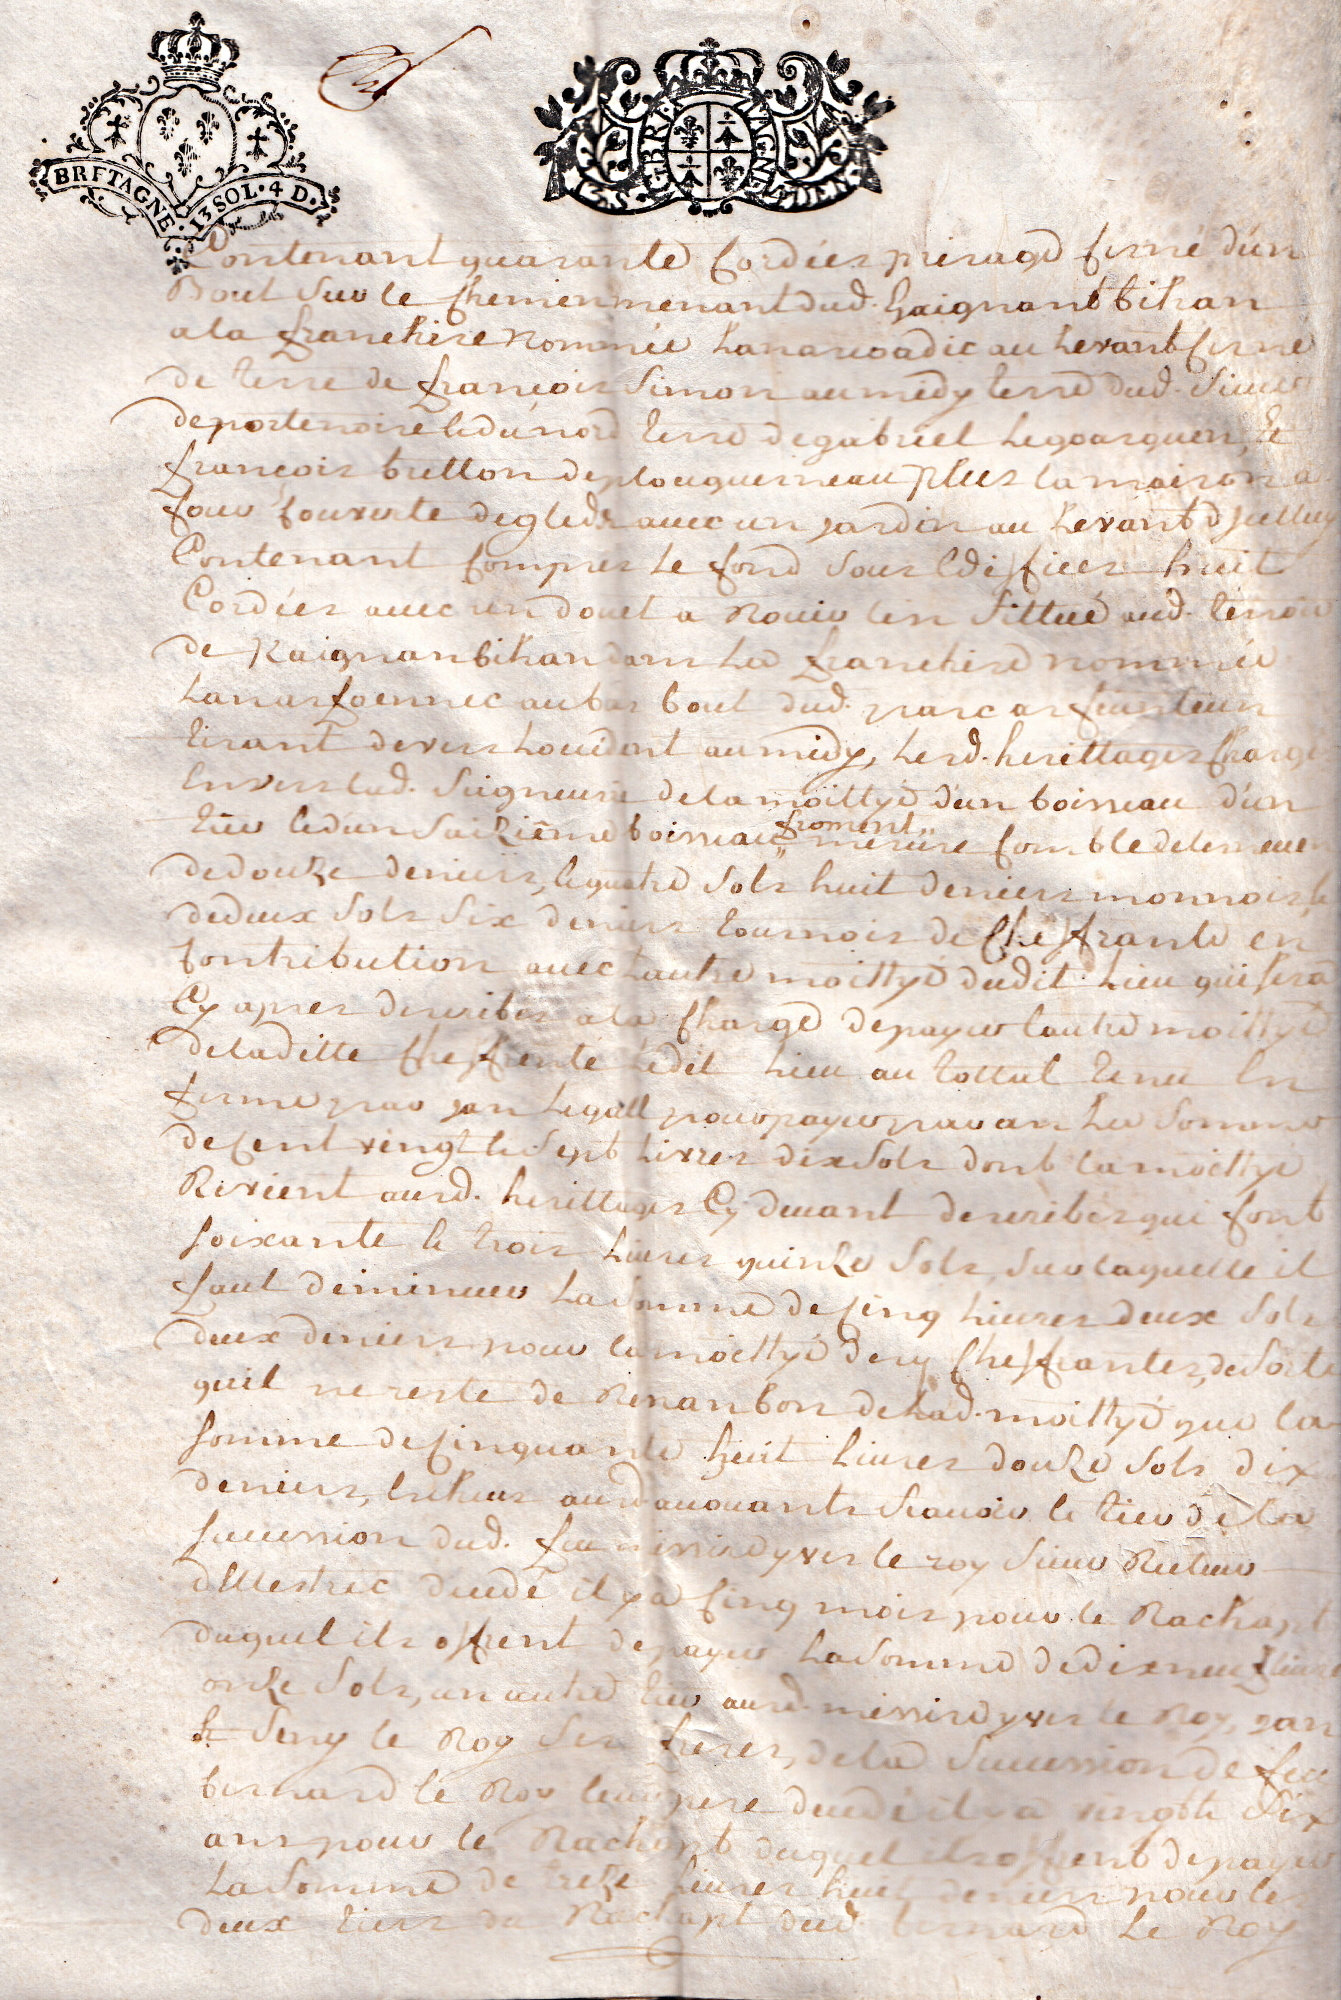 BRETAGNE · 13 SOL · 4 D ·
BRETAGNE
Contenant quarante Cordées prisage cerné d'un
Bout sur le Chemin menant dud. Kaignant bihan
a la franchise nommée Lanarvoadic au Levant cerné
de terre de françois Simon au midy terre dud. Sieur
de portenoire et du nord terre de gabriel Legoasguen, et
françois bretton de plouguerneau plus la maison a
four Couverte de gleds avec un jardin au Levant d'jcelluy
Contenant Compris Le fond sous Ediffices huit
Cordées avec un douet a Rouir lin sittué aud. terroir
de Kaignan bihan dans La franchise nommée
Lanarfoennec au bas bout dud. parc ar feunteun
tirant devers Louidant au midy, Lesd. herittages Chargé
Envers lad. Seigneurie de la moittyé d'un boisseau d'un
tier et d'un saiziême boisseau froment mesure Comble de Lesneuen
de douze deniers, et quatre sols huit deniers monnois, et
de deux sols six deniers tournois de Cheffrante en
Contribution avec Lautre moittyé dudit Lieu qui sera
Cy apres describée a la Charge de payer lautre moittyé
de laditte Cheffrente Ledit Lieu au tottal tenu En
ferme par jan Legall pour payer par an La somme
de Cent vingt et sept Livres dix sols dont la moittyé
Revient ausd. herittages Cy devant describés qui font
soixante et trois Livres quinze sols, sur laquelle il
faut diminuer La somme de Cinq Livres deux sols
deux deniers pour la moittyé desq. Cheffrantes, de sorte
quil ne reste de Revan bon de Lad. moittyé que la
somme de Cinquante huit Livres douze sols dix
deniers, Eschus ausd. avouants sçavoir le tier de La
succession dud. feu missire yves le roy sieur Recteur
d'Illestrec decedé il y a Cinq mois pour le Rachapt
duquel ils offrent de payer La somme de dix neuf Livres
onze sols, un autre tier ausd. missire yves le Roy, jan
et Seny le Roy ses freres, de la succession de feu
bernard le Roy leur pere decedé il y a vingt et six
ans pour le Rachapt duquel ils offrent de payer
La somme de treze Livres huit deniers pour les
deux tiers du Rachapt dud. bernard Le Roy